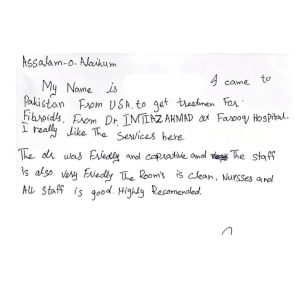 Assalam-o-Alaikum
My Name is I came to
Pakistan From USA. to get treatmen Far
Fibroids. From Dr. IMTIAZ AHMAD at Farooq Hospital.
I really like The Services here
The dr was Friedly and coprative and The staff
is also very Friedly The Room's is clean, Nursses and
All staff is good Highly Recomended